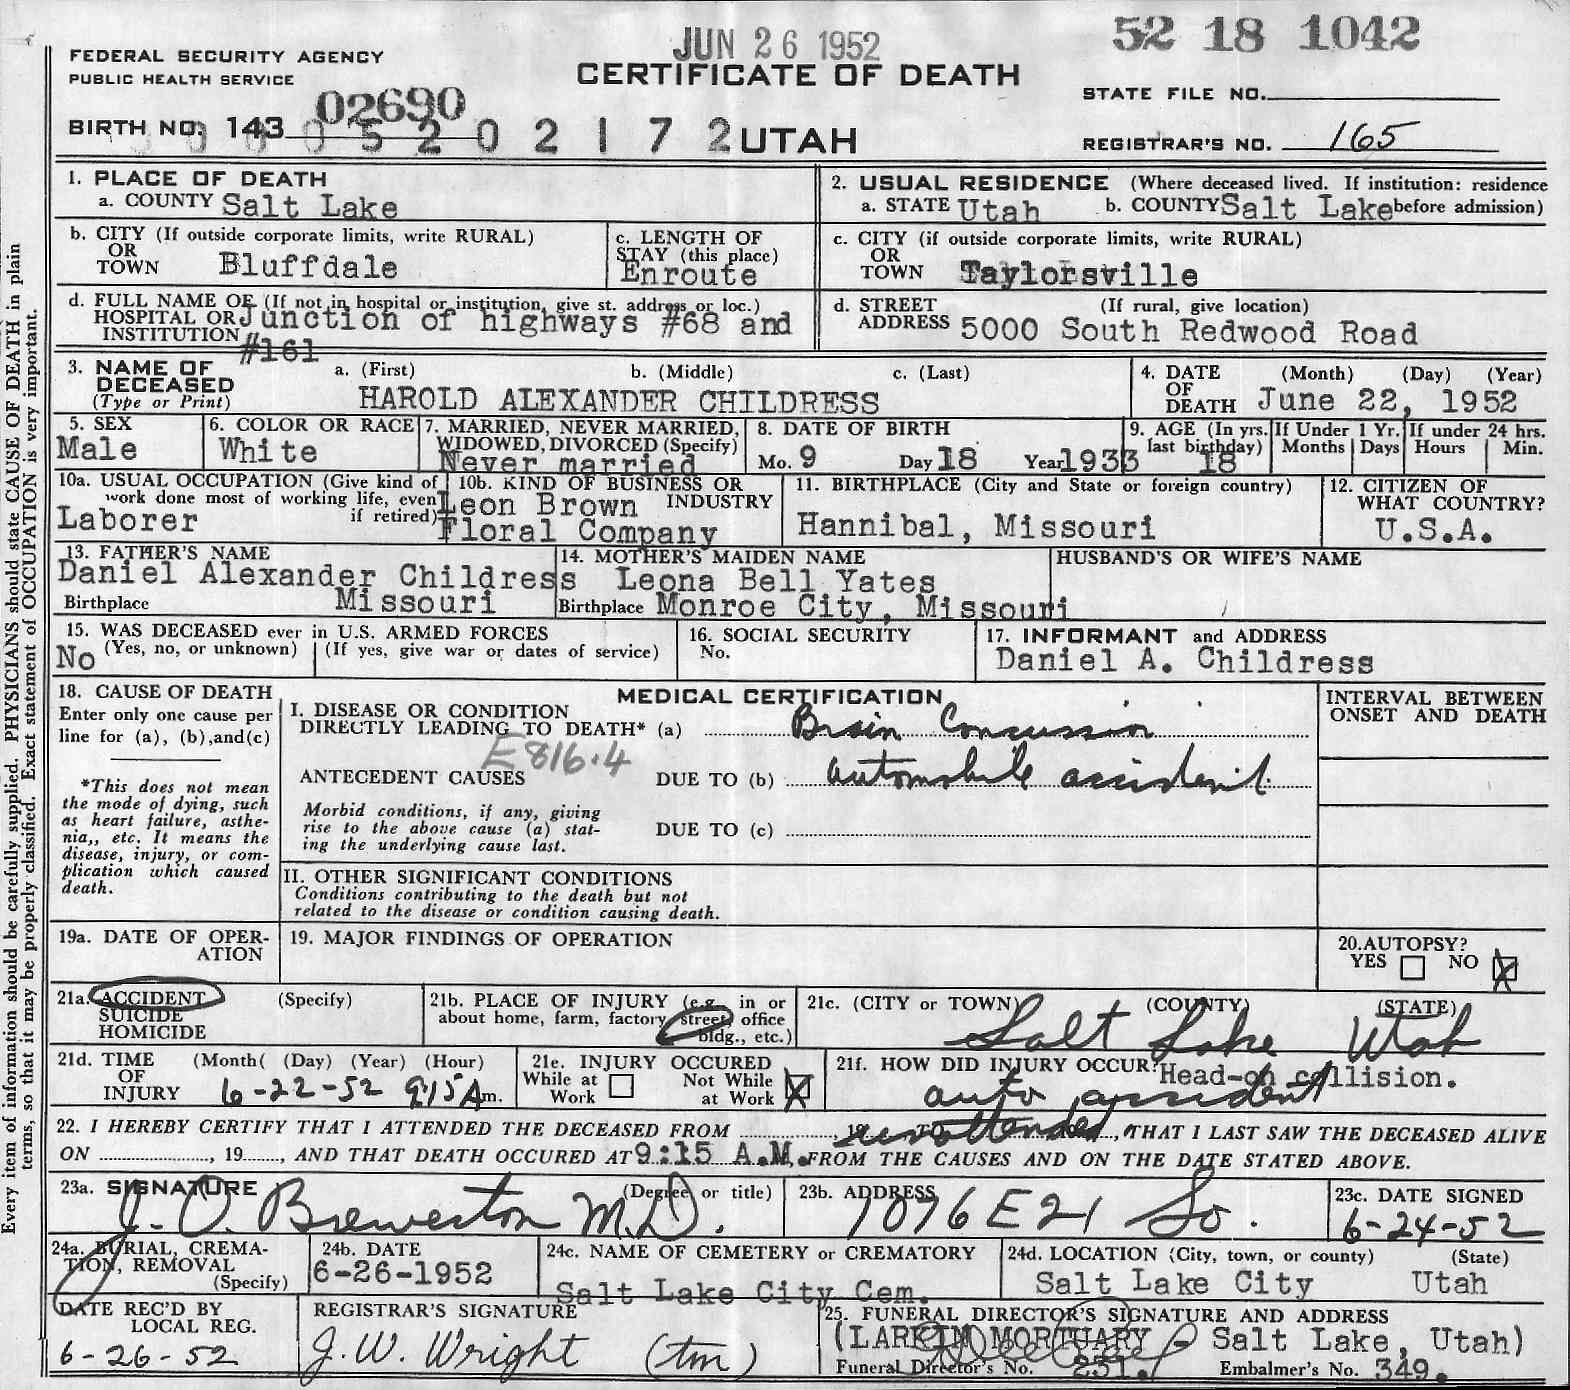 JUN 26 1952
52 18 1042
FEDERAL SECURITY AGENCY
PUBLIC HEALTH SERVICE
CERTIFICATE OF DEATH
STATE FILE NO.
02690
BIRTH NO. 143
0 5 2 0 2 1 7 2
UTAH
REGISTRAR'S NO. 165
Every item of information should be carefully supplied. PHYSICIANS should state CAUSE OF DEATH in plain
terms, so that it may be properly classified. Exact statement of OCCUPATION is very important.
1. PLACE OF DEATH
a. COUNTY Salt Lake
2. USUAL RESIDENCE (Where deceased lived. If institution: residence
a. STATE Utah b. COUNTY Salt Lake before admission)
b. CITY (If outside corporate limits, write RURAL)
OR
TOWN Bluffdale
c. LENGTH OF
STAY (this place)
Enroute
c. CITY (if outside corporate limits, write RURAL)
OR
TOWN Taylorsville
d. FULL NAME OF (If not in hospital or institution, give st. address or loc.)
HOSPITAL OR Junction of highways #68 and
INSTITUTION #161
d. STREET (If rural, give location)
ADDRESS 5000 South Redwood Road
3. NAME OF a. (First) b. (Middle) c. (Last)
DECEASED
(Type or Print) HAROLD ALEXANDER CHILDRESS
4. DATE (Month) (Day) (Year)
OF
DEATH June 22, 1952
5. SEX
Male
6. COLOR OR RACE
White
7. MARRIED, NEVER MARRIED,
WIDOWED, DIVORCED (Specify)
Never married
8. DATE OF BIRTH
Mo. 9 Day 18 Year 1933
9. AGE (In yrs.
last birthday)
18
If Under 1 Yr.
Months Days
If under 24 hrs.
Hours Min.
10a. USUAL OCCUPATION (Give kind of
work done most of working life, even
if retired)
Laborer
10b. KIND OF BUSINESS OR
INDUSTRY
Leon Brown
Floral Company
11. BIRTHPLACE (City and State or foreign country)
Hannibal, Missouri
12. CITIZEN OF
WHAT COUNTRY?
U.S.A.
13. FATHER'S NAME
Daniel Alexander Childress
Birthplace Missouri
14. MOTHER'S MAIDEN NAME
Leona Bell Yates
Birthplace Monroe City, Missouri
HUSBAND'S OR WIFE'S NAME
15. WAS DECEASED ever in U.S. ARMED FORCES
No (Yes, no, or unknown) (If yes, give war or dates of service)
16. SOCIAL SECURITY
No.
17. INFORMANT and ADDRESS
Daniel A. Childress
18. CAUSE OF DEATH
Enter only one cause per
line for (a), (b), and (c)
*This does not mean
the mode of dying, such
as heart failure, asthe-
nia,, etc. It means the
disease, injury, or com-
plication which caused
death.
MEDICAL CERTIFICATION
INTERVAL BETWEEN
ONSET AND DEATH
I. DISEASE OR CONDITION
DIRECTLY LEADING TO DEATH* (a) Brain Concussion
E816.4
ANTECEDENT CAUSES DUE TO (b) automobile accident
Morbid conditions, if any, giving
rise to the above cause (a) stat-
ing the underlying cause last.
DUE TO (c)
II. OTHER SIGNIFICANT CONDITIONS
Conditions contributing to the death but not
related to the disease or condition causing death.
19a. DATE OF OPER-
ATION
19. MAJOR FINDINGS OF OPERATION
20. AUTOPSY?
YES NO X
21a. ACCIDENT (Specify)
SUICIDE
HOMICIDE
21b. PLACE OF INJURY (e.g., in or
about home, farm, factory, street, office
bldg., etc.)
21c. (CITY or TOWN) (COUNTY) (STATE)
Salt Lake Utah
21d. TIME (Month( (Day) (Year) (Hour)
OF
INJURY 6-22-52 9:15 Am.
21e. INJURY OCCURED
While at
Work
Not While
at Work X
21f. HOW DID INJURY OCCUR? Head-on collision.
auto accident
22. I HEREBY CERTIFY THAT I ATTENDED THE DECEASED FROM 19 TO unattended, THAT I LAST SAW THE DECEASED ALIVE
ON , 19 , AND THAT DEATH OCCURED AT 9:15 A.M. FROM THE CAUSES AND ON THE DATE STATED ABOVE.
23a. SIGNATURE (Degree or title)
J. O. Brewerton M.D.
23b. ADDRESS
1076 E 21 So.
23c. DATE SIGNED
6-24-52
24a. BURIAL, CREMA-
TION, REMOVAL
(Specify)
24b. DATE
6-26-1952
24c. NAME OF CEMETERY or CREMATORY
Salt Lake City Cem.
24d. LOCATION (City, town, or county) (State)
Salt Lake City Utah
DATE REC'D BY
LOCAL REG.
6-26-52
REGISTRAR'S SIGNATURE
J. W. Wright (tm)
25. FUNERAL DIRECTOR'S SIGNATURE AND ADDRESS
(LARKIN MORTUARY Salt Lake, Utah)
Funeral Director's No. 231. Embalmer's No. 349.